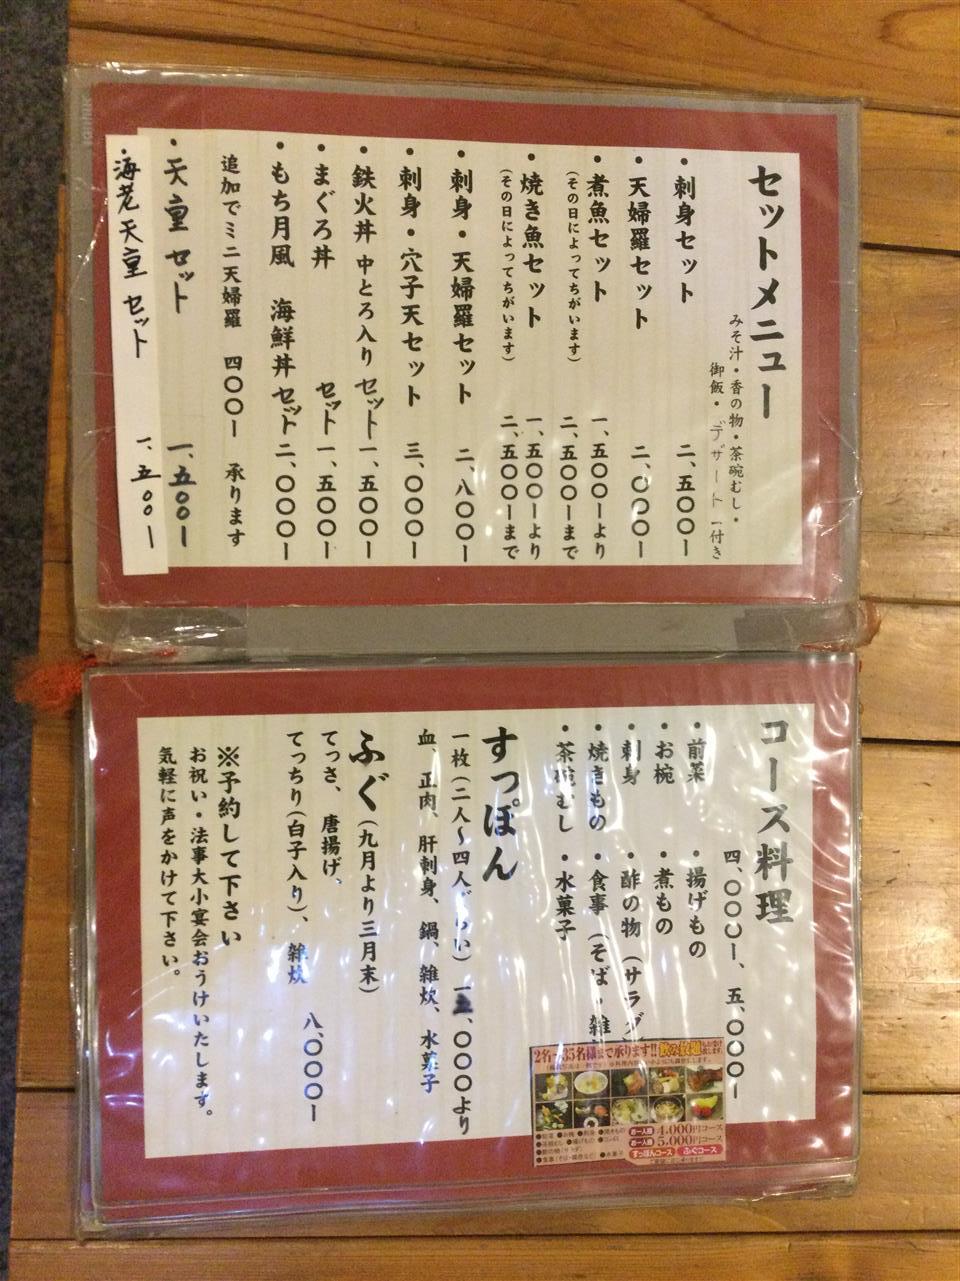 セットメニュー
みそ汁・香の物・茶碗むし・
御飯・デザート付き
・刺身セット 二、五〇〇ー
・天婦羅セット 二、〇〇〇ー
・煮魚セット 一、五〇〇ーより
(その日によってちがいます) 二、五〇〇ーまで
・焼き魚セット 一、五〇〇ーより
(その日によってちがいます) 二、五〇〇ーまで
・刺身・天婦羅セット 二、八〇〇ー
・刺身・穴子天セット 三、〇〇〇ー
・鉄火丼 中とろ入り セット 一、五〇〇ー
・まぐろ丼 セット 一、五〇〇ー
・もち月風 海鮮丼 セット 二、〇〇〇ー
追加でミニ天婦羅 四〇〇ー 承ります
・天重 セット 一、五〇〇ー
・海老天重 セット 一、五〇〇ー
コース料理
四、〇〇〇ー、五、〇〇〇ー
・前菜 ・揚げもの
・お椀 ・煮もの
・刺身 ・酢の物(サラダ)
・焼きもの ・食事(そば・雑
・茶碗むし ・水菓子
2名〜35名様まで承ります!! 飲み放題
お一人様 4,000円コース
お一人様 5,000円コース
すっぽんコース ふぐコース
すっぽん
一枚(二人〜四人ぐらい) 〇〇〇より
血、正肉、肝刺身、鍋、雑炊、水菓子
ふぐ(九月より三月末)
てっさ、唐揚げ、
てっちり(白子入り)、雑炊 八、〇〇〇ー
※予約して下さい
お祝い・法事大小宴会おうけいたします。
気軽に声をかけて下さい。